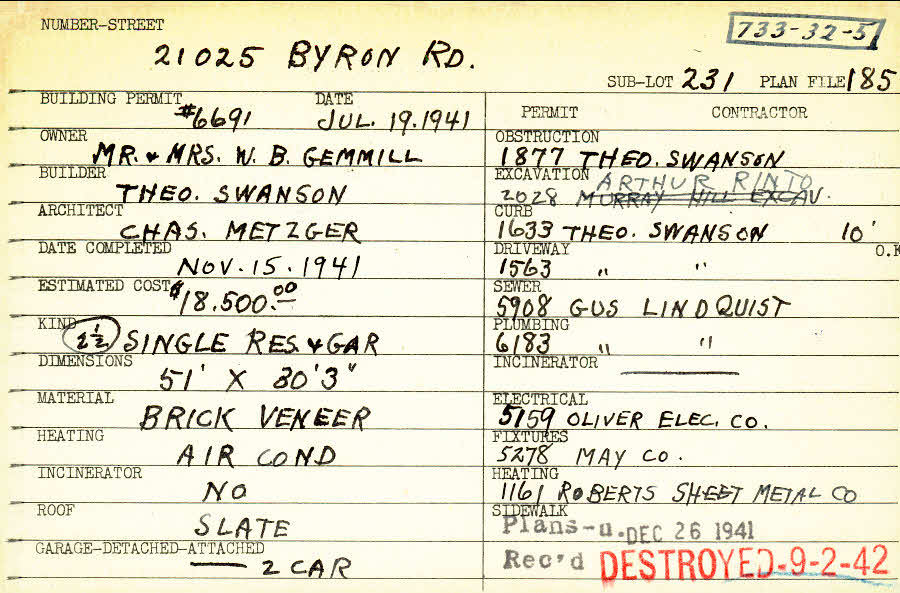 NUMBER-STREET
733-32-51
21025 BYRON RD.
SUB-LOT 231 PLAN FILE 185
BUILDING PERMIT DATE
#6691 JUL. 19. 1941
OWNER
MR. & MRS. W. B. GEMMILL
BUILDER
THEO. SWANSON
ARCHITECT
CHAS. METZGER
DATE COMPLETED
NOV. 15. 1941
ESTIMATED COST
$18.500.00
KIND
2½ SINGLE RES. & GAR
DIMENSIONS
51' X 30'3"
MATERIAL
BRICK VENEER
HEATING
AIR COND
INCINERATOR
NO
ROOF
SLATE
GARAGE-DETACHED-ATTACHED
2 CAR
PERMIT CONTRACTOR
OBSTRUCTION
1877 THEO. SWANSON
EXCAVATION ARTHUR RINTO
2028 MURRAY HILL EXCAV.
CURB
1633 THEO. SWANSON 10'
DRIVEWAY O.K
1563 " "
SEWER
5908 GUS LINDQUIST
PLUMBING
6183 " "
INCINERATOR
ELECTRICAL
5159 OLIVER ELEC. CO.
FIXTURES
5278 MAY CO.
HEATING
1161 ROBERTS SHEET METAL CO
SIDEWALK
Plans-u. DEC 26 1941
Rec'd DESTROYED-9-2-42